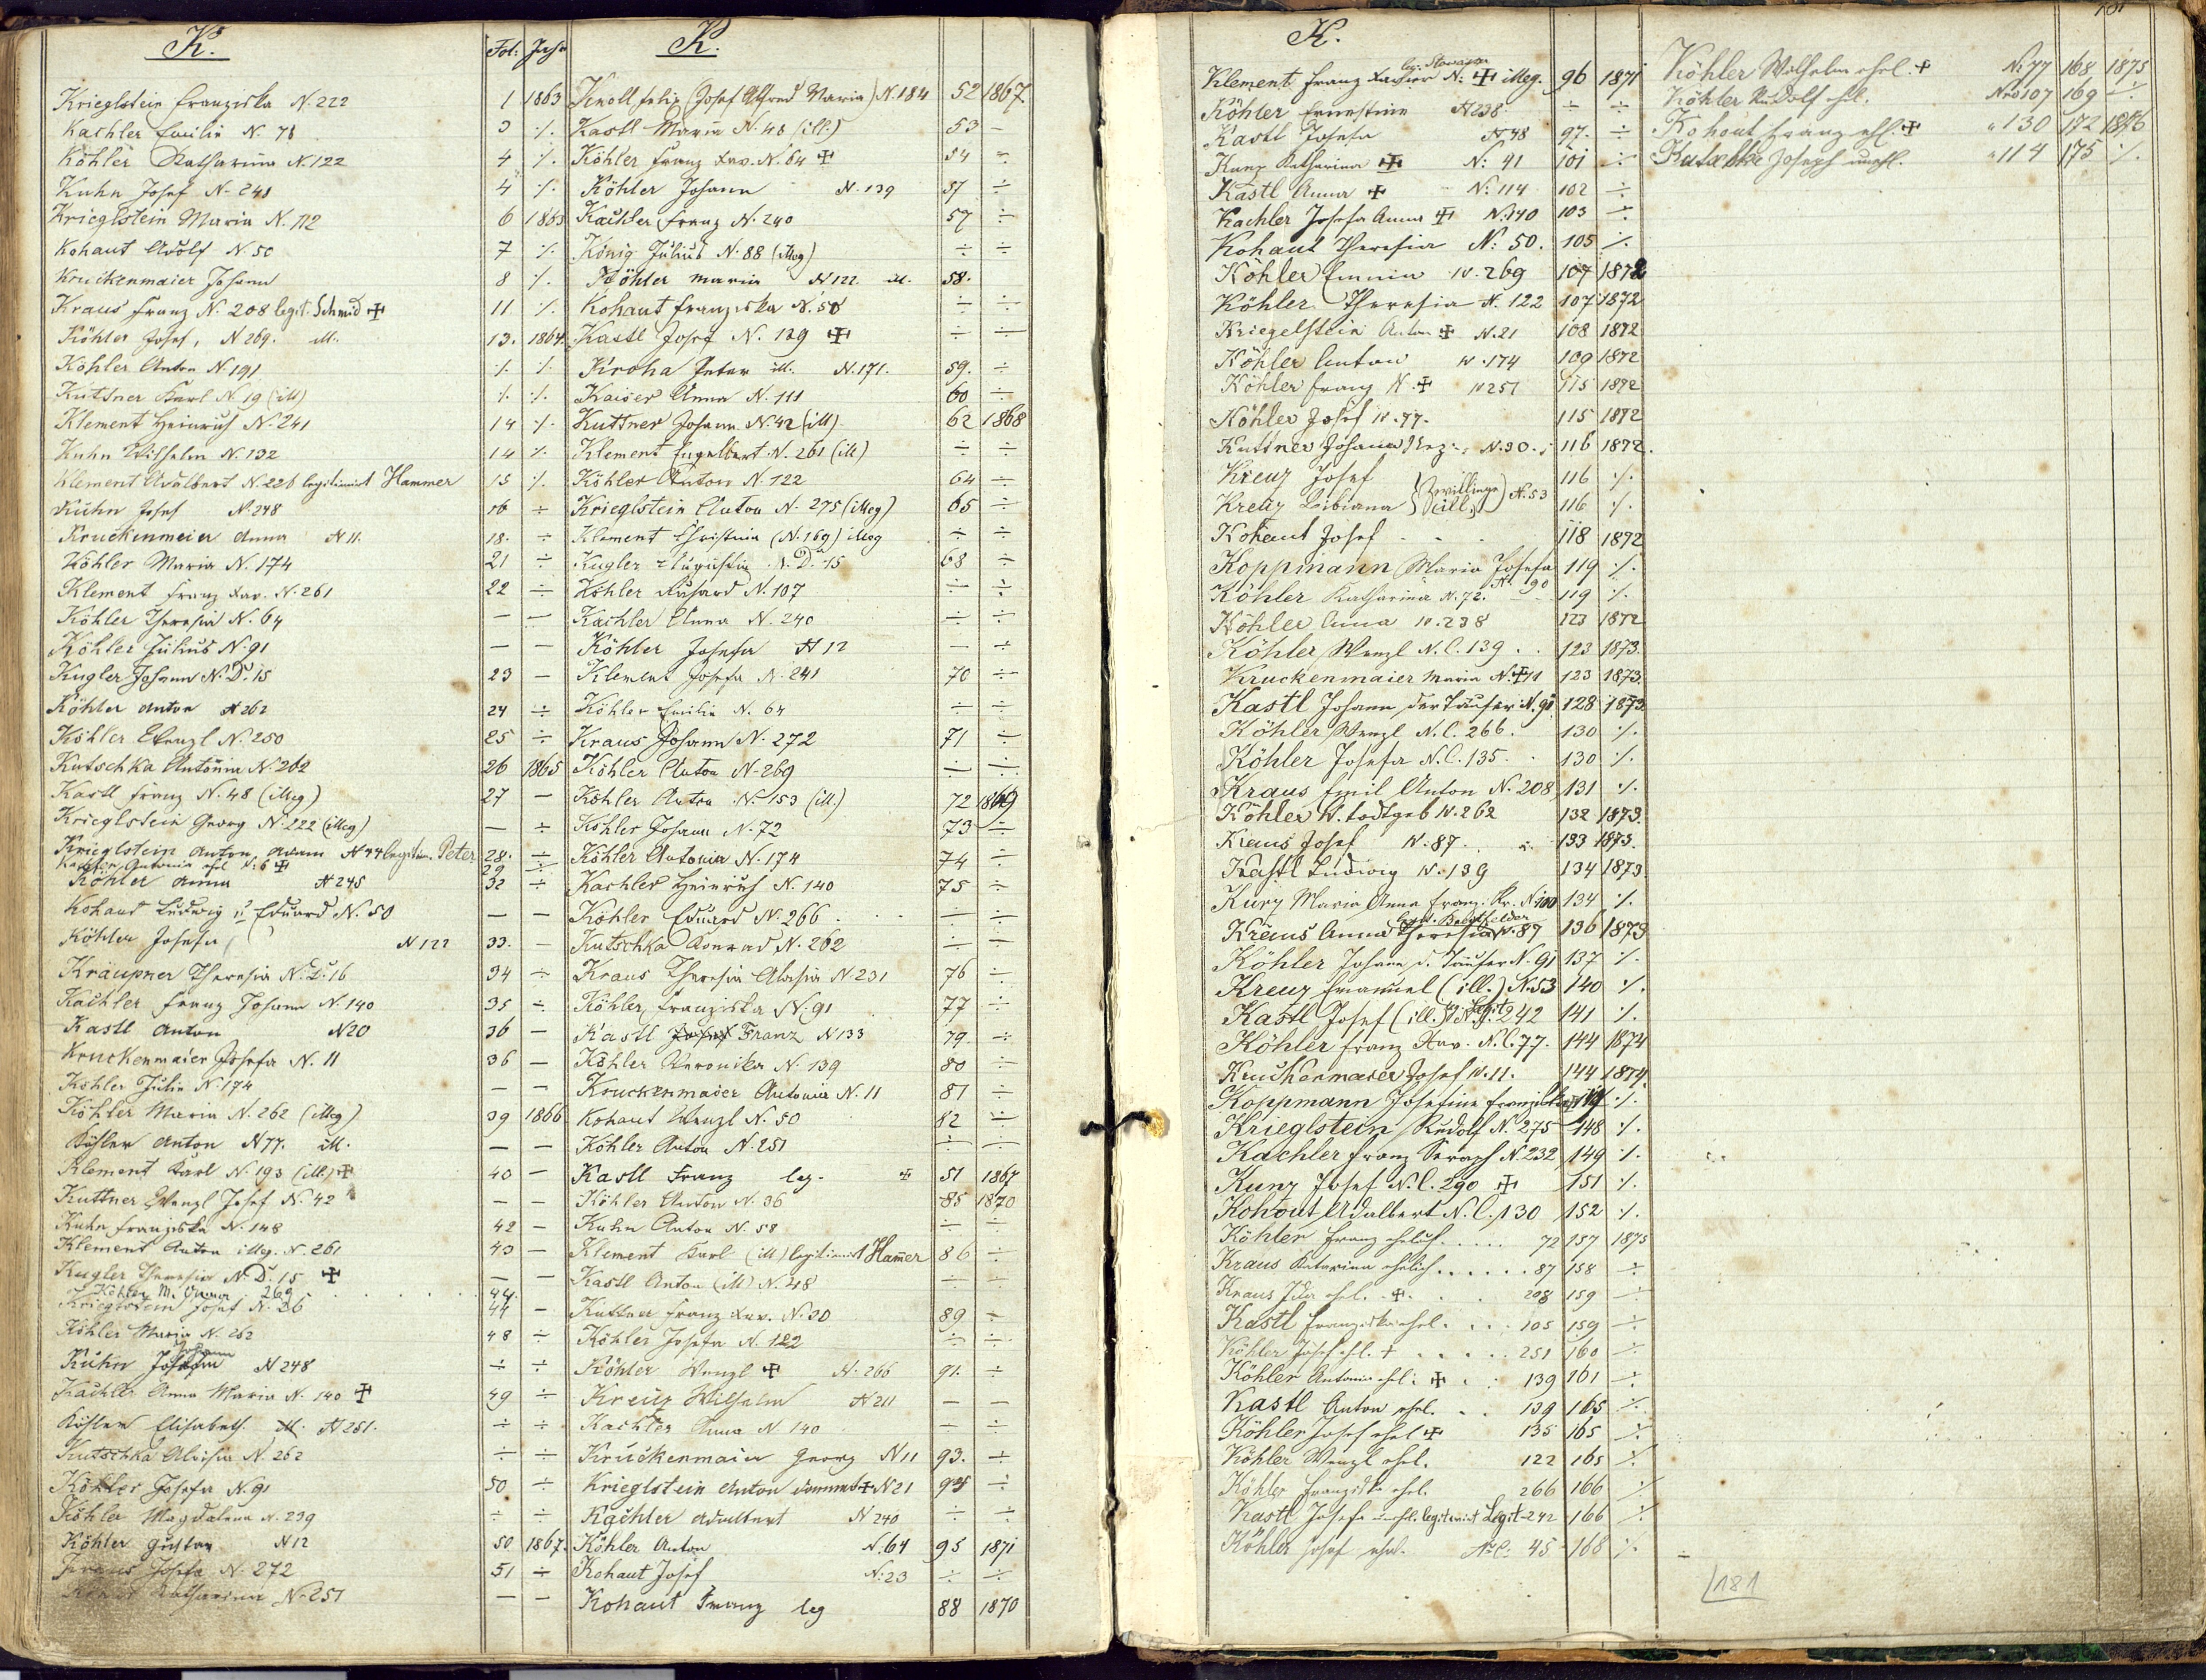 K. Fol: Jahr
Krieglstein Franziska N. 222 1 1863
Kachler Emilie N. 78 3 ./.
Köhler Katharina N. 122 4 ./.
Kuhn Josef N. 241 4 ./.
Krieglstein Maria N. 112 6 1863
Kohaut Adolf N. 50 7 ./.
Kruckenmaier Johann 8 ./.
Kraus Franz N. 208 legit. Schmid ✠ 11 ./.
Köhler Josef, N 269. ill. 13. 1864.
Köhler Anton N. 191 ./. ./.
Kuttner Karl N. 19 (ill) ./. ./.
Klement Heinrich N. 241 14 ./.
Kuhn Wilhelm N. 132 14 ./.
Klement Adalbert N. 226 legitimirt Hammer 15 ./.
Kuhn Josef N. 248 16 ÷
Kruckenmeier Anna N 11. 18. ÷
Köhler Maria N. 174 21 ÷
Klement Franz Xav. N. 261 22 ÷
Köhler Theresia N. 64 — —
Köhler Julius N. 91 — —
Kugler Johann N. D. 15 23 —
Köhler Anton N 262 24 ÷
Köhler Wenzl N. 250 25 ÷
Kutschka Antonia N. 262 26 1865
Kastl Franz N. 48 (illeg) 27 —
Krieglstein Georg N. 222 (illeg) — ÷
Krieglstein Anton, Adam N 44 legitim. Peter 28. ÷
Antonia ehl N. 6 ✠ 29
Köhler Anna N 245 32 ÷
Kohaut Ludwig u Eduard N. 50 — —
Köhler Josefa N 122 33. —
Kräupner Theresia N. D. 16 34 ÷
Kachler Franz Johann N. 140 35 ÷
Kastl Anton N 20 36 —
Kruckenmaier Josefa N. 11 36 —
Köhler Julie N 174 — —
Köhler Maria N. 262 (illeg) 39 1866
Köhler Anton N 77. ill. — —
Klement Karl N. 193 (ill.) ✠ 40 —
Kuttner Wenzl Josef N. 42 — —
Kuhn Franziska N. 148 42 —
Klement Anton illeg. N. 261 43 —
Kugler Theresia N. D. 15 ✠ — —
Köhler M. 269 44.
Krieglstein Josef N. 26 44 —
Köhler Maria N. 262 48 ÷
Kuhn Johann N 248 ÷ ÷
Kachler Anna Maria N. 140 ✠ 49 ÷
Köhler Elisabeth ill. N 251. ÷ ÷
Kutschka Aloisia N. 262 ÷ ÷
Köhler Josefa N. 91 50 ÷
Köhler Magdalena N. 239 ÷ ÷
Köhler Gustav N 12 50 1867.
Kraus Josefa N. 272 51 ÷
Katharina N. 251 — —
K.
Knoll Felix (Josef Alfred Maria) N. 184 52 1867
Kastl Maria N. 48 (ill.) 53 —
Köhler Franz Xav. N. 64 ✠ 54 ÷
Köhler Johann N. 139 57 ÷
Kachler Franz N. 240 57 ÷
König Julius N. 88 (illeg) ÷ ÷
Köhler Maria N 122. ill. 58.
Kohaut Franziska N. 50 ÷ ÷
Kastl Josef N. 129 ✠ ÷ ÷
Kroha Peter ill. N. 171. 59. ÷
Kaiser Anna N. 111 60 ÷
Kuttner Johann N. 42 (ill) 62 1868
Klement Engelbert N. 261 (ill) ÷ ÷
Köhler Anton N. 122 64 ÷
Krieglstein Anton N. 275 (illeg) 65 ÷
Klement Christina (N. 169) illeg ÷ ÷
Kugler Augustin N. D. 15 68 ÷
Köhler Richard N. 107 ÷ ÷
Kachler Anna N. 240 ÷ ÷
Köhler Josefa N 12 — ÷
Klement Josefa N. 241 70 ÷
Köhler Emilie N. 64 ÷ ÷
Kraus Johann N. 272 71 ÷
Köhler Anton N. 269 ÷ ÷
Köhler Anton N. 153 (ill.) 72 1869
Köhler Johann N. 72 73 ÷
Köhler Antonia N. 174 74 ÷
Kachler Heinrich N. 140 75 ÷
Köhler Eduard N. 266 ÷ ÷
Kutschka Konrad N. 262 ÷ ÷
Kraus Theresia Aloisia N 231 76 ÷
Köhler Franziska N. 91 77 ÷
Kastl Josef Franz N 133 79. ÷
Köhler Veronika N. 139 80 ÷
Kruckenmaier Antonia N. 11 81 ÷
Kohaut Wenzl N. 50 82 ÷
Köhler Anton N. 251 ÷ ÷
Kastl Franz leg. ✠ 51 1867
Köhler Anton N. 36 85 1870
Kuhn Anton N. 58 ÷ ÷
Klement Karl (ill) legitimirt Hamer 86 ÷
Kastl Anton (ill) N. 48 ÷ ÷
Kuttner Franz Xav. N. 30 89 ÷
Köhler Josefa N. 122 ÷ ÷
Köhler Wenzl ✠ N. 266 91. ÷
Kreuz Wilhelm N 211 — —
Kachler Anna N 140 — ÷
Kruckenmaier Georg N 11 93. ÷
Krieglstein Anton ✠ N 21 94 ÷
Kachler Adalbert N 240 ÷ ÷
Köhler Anton N. 64 95 1871
Kohaut Josef N. 23 ÷ ÷
Kohaut Franz leg 88 1870
K.
Klement Franz Xavier N: ✠ illeg. 96 1871
Köhler Ernestine N 238 ÷ ÷
Kastl Josefa N 48 97. ÷
Kunz Katharina ✠ N: 41 101 ÷
Kastl Anna ✠ N: 114 102 ÷
Kachler Josefa Anna ✠ N. 140 103 ÷
Kohaut Theresia N: 50. 105 ./.
Köhler Emma N. 269 107 1872
Köhler Theresia N. 122 107 1872
Kriegelstein Anton ✠ N. 21 108 1872
Köhler Anton N. 174 109 1872
Köhler Franz N. ✠ N 251 115 1872
Köhler Josef N. 77. 115 1872
Kuttner Johann N. 30. 116 1872.
Kreuz Josef 116 ./.
(Zwillinge) (ill.) N. 53
Kreuz Bibiana 116 ./.
Kohaut Josef 118 1872
Koppmann Maria Josefa N 90 119 ./.
Köhler Katharina N. 72. 119 ./.
Köhler Anna N. 238 123 1872
Köhler Wenzl N. C. 139 123 1873.
Kruckenmaier Maria N. ✠ 11 123 1873.
Kastl Johann der Täufer N. 91 128 1873
Köhler Wenzl N. C. 266. 130 ./.
Köhler Josefa N. C. 135. 130 ./.
Kraus Emil Anton N. 208 131 ./.
Köhler W. todtgeb N. 262 132 1873.
Kraus Josef N. 87 133 1873.
Kastl Ludwig N. 139 134 1873
Kury Maria Anna Franz. Kr. N 100 134 ./.
Kraus Anna Theresia N. 87 136 1873
Köhler Johann d. Täufer N. 91 137 ./.
Kreuz Emanuel (ill.) N. 53 140 ./.
Kastl Josef (ill.) Legit N. 242 141 ./.
Köhler Franz Xav. N. C. 77. 144 1874
Kruckenmaier Josef N. 11. 144 1874.
Koppmann Josefine Franziska ./.
Krieglstein Rudolf N. 275 148 ./.
Kachler Franz Seraph N. 232 149 ./.
Kunz Josef N. C. 290 ✠ 151 ./.
Kohout Adalbert N. C. 130 152 ./.
Köhler Franz ehelich 72 157 1875
Kraus Katarina ehelich 87 158 ÷
Kraus Ida ehel. ✠ 208 159 ÷
Kastl Franziska ehel. 105 159 ÷
Köhler Josef ehl. + 251 160 ÷
Köhler Antonia ehel: ✠ 139 161 ÷
Kastl Anton ehel. 139 165 ./.
Köhler Josef ehel ✠ 135 165 ./.
Köhler Wenzl ehel. 122 165 ./.
Köhler Franziska ehel. 266 166 ./.
Kastl Josefa unehl. legitimirt Legit 242 166 ./.
Köhler Josef ehel. No C: 45 168 ./.
Köhler Wilhelm ehel. + No 77 168 1875
Köhler Rudolf ehl. Nro 107 169 ÷
Kohout Franz ehl. ✠ " 130 172 1876
Kutschka Joseph unehl. " 114 175 ./.
181